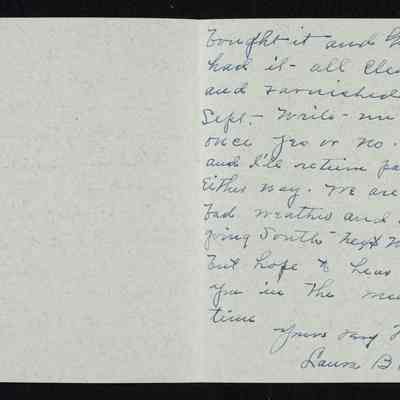 bought it and
had it - all
and varnished
Sept. - Write - me
once yes or no.
and I'll return
Either way. We are
bad weather and
going South - next
But hope to hear
you in the
time
Yours very
Laura B